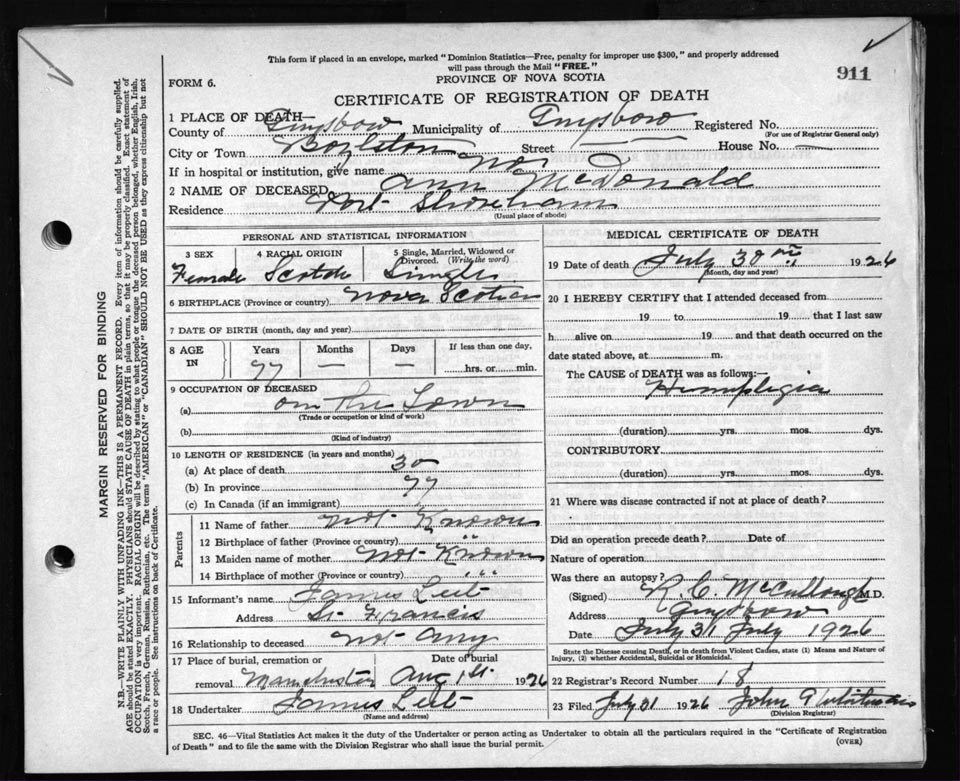 This form if placed in an envelope, marked "Dominion Statistics—Free, penalty for improper use $300," and properly addressed
will pass through the Mail "FREE."
911
FORM 6.
PROVINCE OF NOVA SCOTIA
CERTIFICATE OF REGISTRATION OF DEATH
1 PLACE OF DEATH—
County of Guysboro Municipality of Guysboro Registered No.
(For use of Registrar General only)
City or Town Boylston Street — House No. —
If in hospital or institution, give name no
2 NAME OF DECEASED Ann McDonald
Residence Port Shoreham
(Usual place of abode)
PERSONAL AND STATISTICAL INFORMATION
3 SEX 4 RACIAL ORIGIN 5 Single, Married, Widowed or Divorced. (Write the word)
Female Scotch Single
6 BIRTHPLACE (Province or country) Nova Scotia
7 DATE OF BIRTH (month, day and year)
8 AGE IN Years Months Days If less than one day,
77 — — hrs. or min.
9 OCCUPATION OF DECEASED
(a) on the Town
(Trade or occupation or kind of work)
(b)
(Kind of industry)
10 LENGTH OF RESIDENCE (in years and months)
(a) At place of death 30
(b) In province 77
(c) In Canada (if an immigrant)
Parents
11 Name of father not Known
12 Birthplace of father (Province or country) " "
13 Maiden name of mother not Known
14 Birthplace of mother (Province or country) " "
15 Informant's name James
Address St Francis
16 Relationship to deceased not any
17 Place of burial, cremation or removal Manchester Date of burial Aug 1st 1926
18 Undertaker James
(Name and address)
MEDICAL CERTIFICATE OF DEATH
19 Date of death July 30th 1926
(Month, day and year)
20 I HEREBY CERTIFY that I attended deceased from
19 to 19 that I last saw
h alive on 19 and that death occurred on the
date stated above, at m.
The CAUSE OF DEATH was as follows:—
Hemiplegia
(duration) yrs. mos. dys.
CONTRIBUTORY
(duration) yrs. mos. dys.
21 Where was disease contracted if not at place of death?
Did an operation precede death? Date of
Nature of operation
Was there an autopsy?
(Signed) R. C. McCullough M.D.
Address Guysboro
Date July 31 July 1926
State the Disease causing Death, or in death from Violent Causes, state (1) Means and Nature of
Injury, (2) whether Accidental, Suicidal or Homicidal.
22 Registrar's Record Number 18
23 Filed July 31 1926 John
(Division Registrar)
SEC. 46—Vital Statistics Act makes it the duty of the Undertaker or person acting as Undertaker to obtain all the particulars required in the "Certificate of Registration
of Death" and to file the same with the Division Registrar who shall issue the burial permit.
(OVER)
MARGIN RESERVED FOR BINDING
N.B.—WRITE PLAINLY WITH UNFADING INK—THIS IS A PERMANENT RECORD. Every item of information should be carefully supplied.
AGE should be stated EXACTLY. PHYSICIANS should STATE CAUSE OF DEATH in plain terms, so that it may be properly classified. Exact statement of
OCCUPATION is very important. RACIAL ORIGIN will be described by stating to what people or tongue the deceased person belonged, whether English, Irish,
Scotch, French, German, Russian, Ruthenian, etc. The terms "AMERICAN" or "CANADIAN" SHOULD NOT BE USED as they express citizenship but not
a race or people. See instructions on back of Certificate.